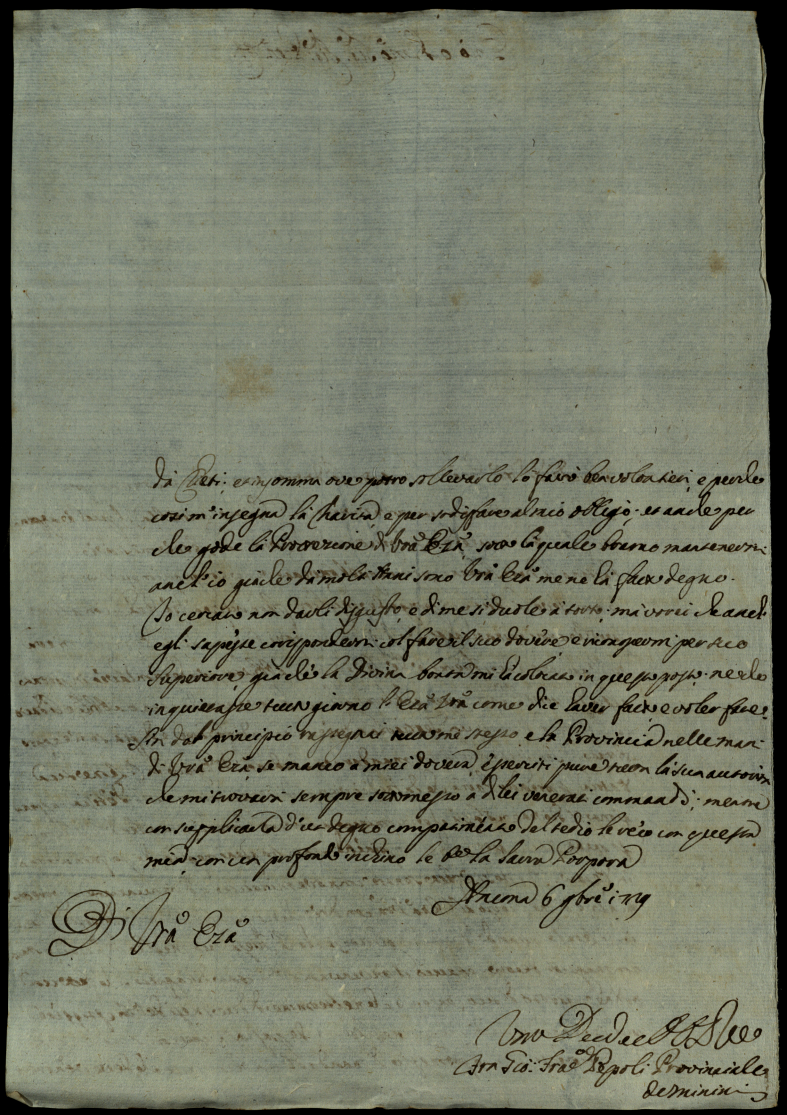 da Chieti: et insomma ove potro sollevarlo lo farò ben volontieri, e perche
cosi m'insegna la Charità, e per sodisfare al mio obligo: et anche per
che gode la Protezione di Vrâ Ezâ sotto la quale bramo mantenermi
anch'io giache da molti Anni sono Vrâ Ezâ me ne hà fatto degno.
Io cercato non darli disgusto, e di me si duole à torto: ma vorrei che anch'
egli sapesse corrispondermi col fare il suo dovere e riconoscermi per suo
Superiore, giache la Divina bontà mi hà colocato in questo posto: ne che
inquietasse tutto giorno l'Ezâ Vrâ come dice haver fatto e voler fare.
Sin dal principio rassegnai tutto me stesso e la Provincia nelle mani
di Vrâ Ezâ, se manco a miei doveri, eserciti pure con la sua autorità
che mi trovarà sempre sottomesso a di lei venerati commandi: mentre
con supplicarla d'un degno compatimento del tedio le reco con questa
mia con un profondo inchino le bacio la Sacra Porpora
Ancona 6 9bre 1729
Di Vrâ Ezâ
Fran Provinciale
de Minimi